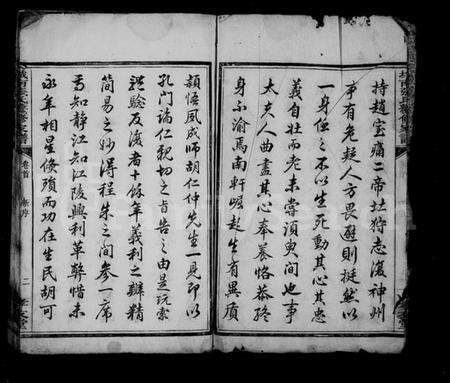 持趙宝痛二帝北狩志復神州
事有危疑人方畏避則挺然以
一身任之不以生死動其心其忠
義自壮而老未嘗頃臾間也事
太夫人曲盡其心奉養恪恭終
身不渝焉南軒崛起生有異質
頴悟夙成師胡仁仲先生一見即以
孔門論仁親切之旨告之由是玩索
體驗反復者十餘年義利之辦精
簡易之妙得程朱之間参一席
焉知静江知江陵興利革弊惜未
永年相星倏殞而功在生民胡可
卷首